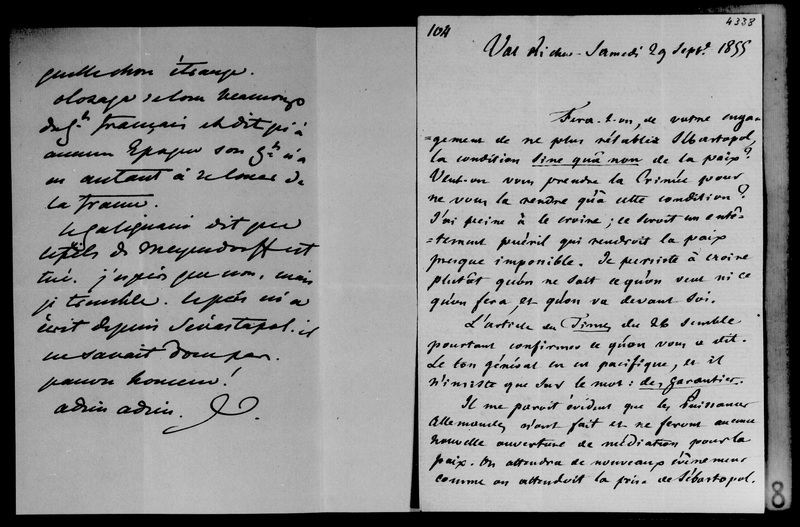 quelle chose étrange.
Olozaga se loue beaucoup
du gt français et dit qu'à
aucune Epoque son gt n'a
eu autant à se louer de
la france.
le galignani dit que
le fils de Meyendorff est
tué. j'espère que non, mais
je tremble. le père m'a
écrit depuis Sévastopol. il
ne savait donc pas.
pauvre homme !
adieu adieu.
104
4338
Val Richer - Samedi 29 Septe 1855
Fera-t-on, de votre enga-
=gement de ne plus rétablir Sébastopol,
la condition sine quâ non de la paix ?
Veut-on vous prendre la Crimée pour
ne vous la rendre qu'à cette condition ?
J'ai peine à le croire ; ce seroit un entê-
=tement puéril qui rendroit la paix
presque impossible. Je persiste à croire
plutôt qu'on ne sait ce qu'on veut ni ce
qu'on fera, et qu'on va devant soi.
L'article du Times du 26 semble
pourtant confirmer ce qu'on vous a dit.
Le ton général en est pacifique, et il
n'insiste que sur le mot : des garanties.
Il me paroit évident que les Puissances
allemandes n'ont fait et ne feront aucune
nouvelle ouverture de médiation pour la
paix. On attendra de nouveaux événemens
comme on attendoit la prise de Sébastopol.
8